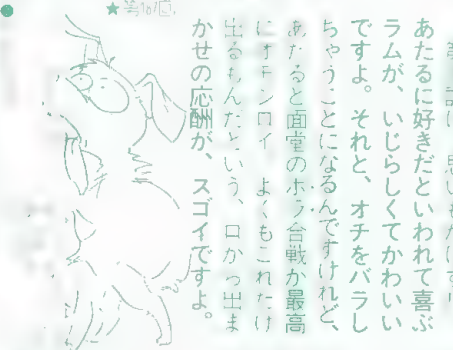 あたるに好きだといわれて喜ぶ
ラムが、いじらしくてかわいい
ですよ。それと、オチをバラし
ちゃうことになるんですけれど、
あたると面堂のホラ合戦が最高
にオモシロイ よくもこれだけ
出るもんだという、口から出ま
かせの応酬が、スゴイですよ。